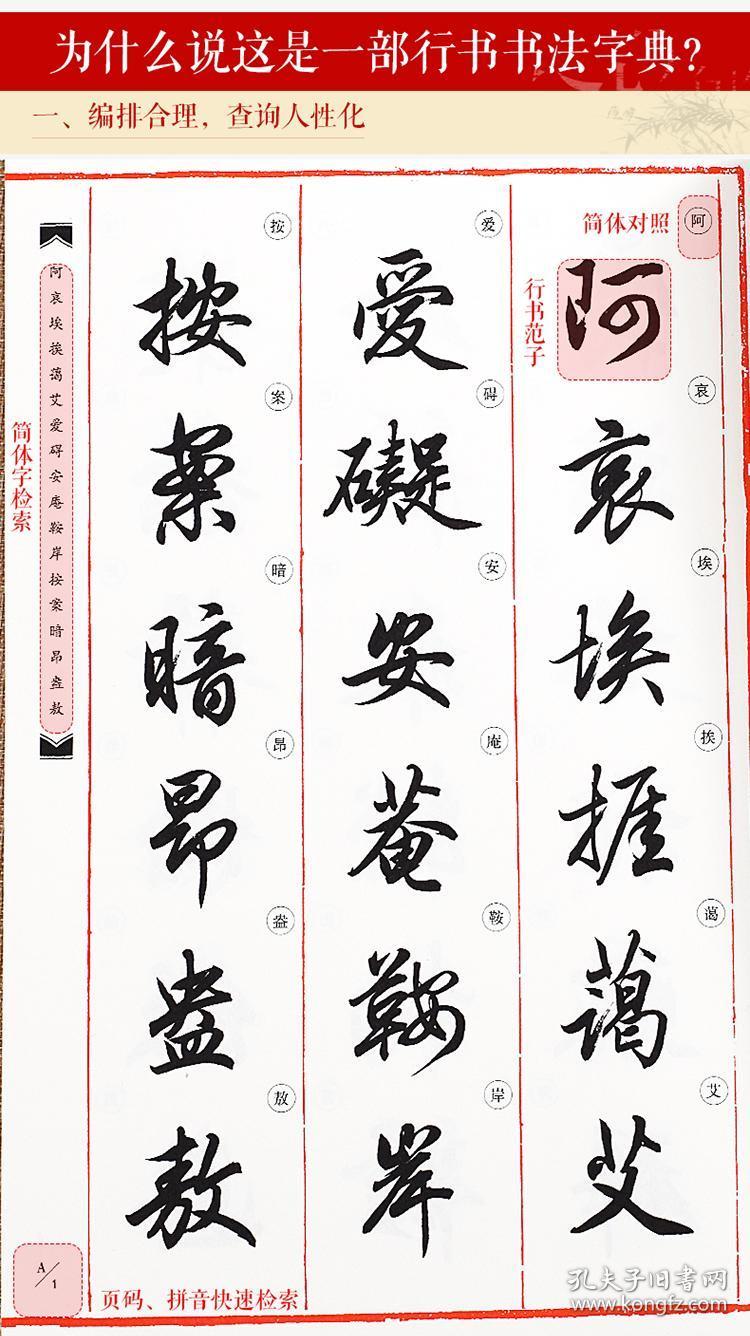 为什么说这是一部行书书法字典？
一、编排合理，查询人性化
简体对照
阿
行书范子
阿
哀
哀
埃
埃
挨
捱
蔼
藹
艾
艾
爱
愛
碍
礙
安
安
庵
菴
鞍
鞍
岸
岸
按
按
案
案
暗
暗
昂
昂
盎
盎
敖
敖
简体字检索
阿哀埃挨蔼艾爱碍安庵鞍岸按案暗昂盎敖
A/1
页码、拼音快速检索
孔夫子旧书网
www.kongfz.com